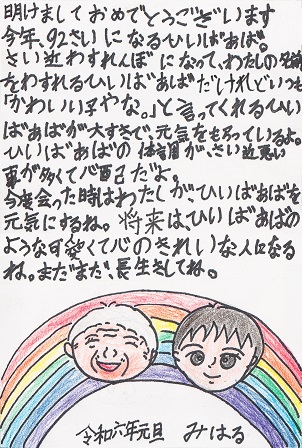 明けまして おめでとうございます
今年、92さい になるひいばあば。
さい近わすれんぼ になって、わたしの名前
をわすれるひいばあばだけれどいつも
「かわいい子やな。」と言ってくれるひい
ばあばが大すきで、元気をもらっているよ。
ひいばあばの 体調が、さい近悪い
事が多くて心配だよ。
今度会った時はわたしが、ひいばあばを
元気にするね。将来は、ひいばあばの
ような可愛くて心のきれいな人になる
ね。まだまだ、長生きしてね。
令和六年元旦 みはる